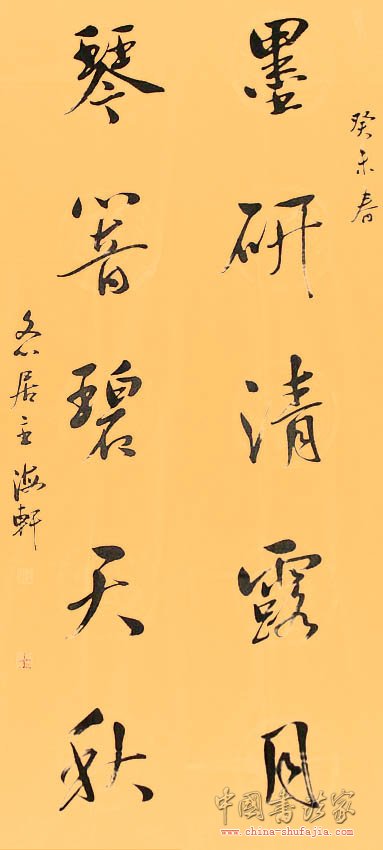 癸未春
墨研清露月
琴響碧天秋
居主海軒
中国书法家
www.china-shufajia.com